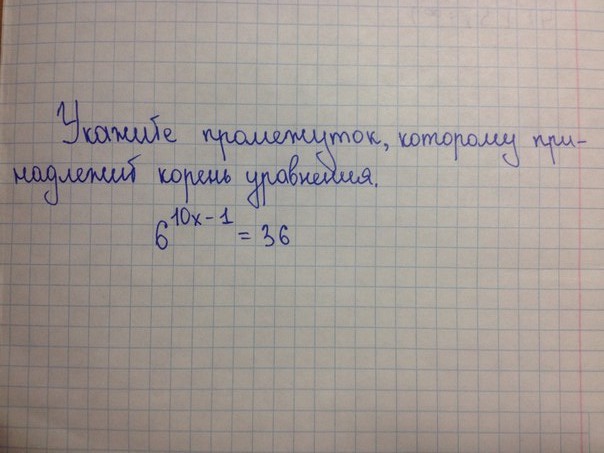 Укажите промежуток, которому при-
надлежит корень уравнения.
6^{10x-1} = 36